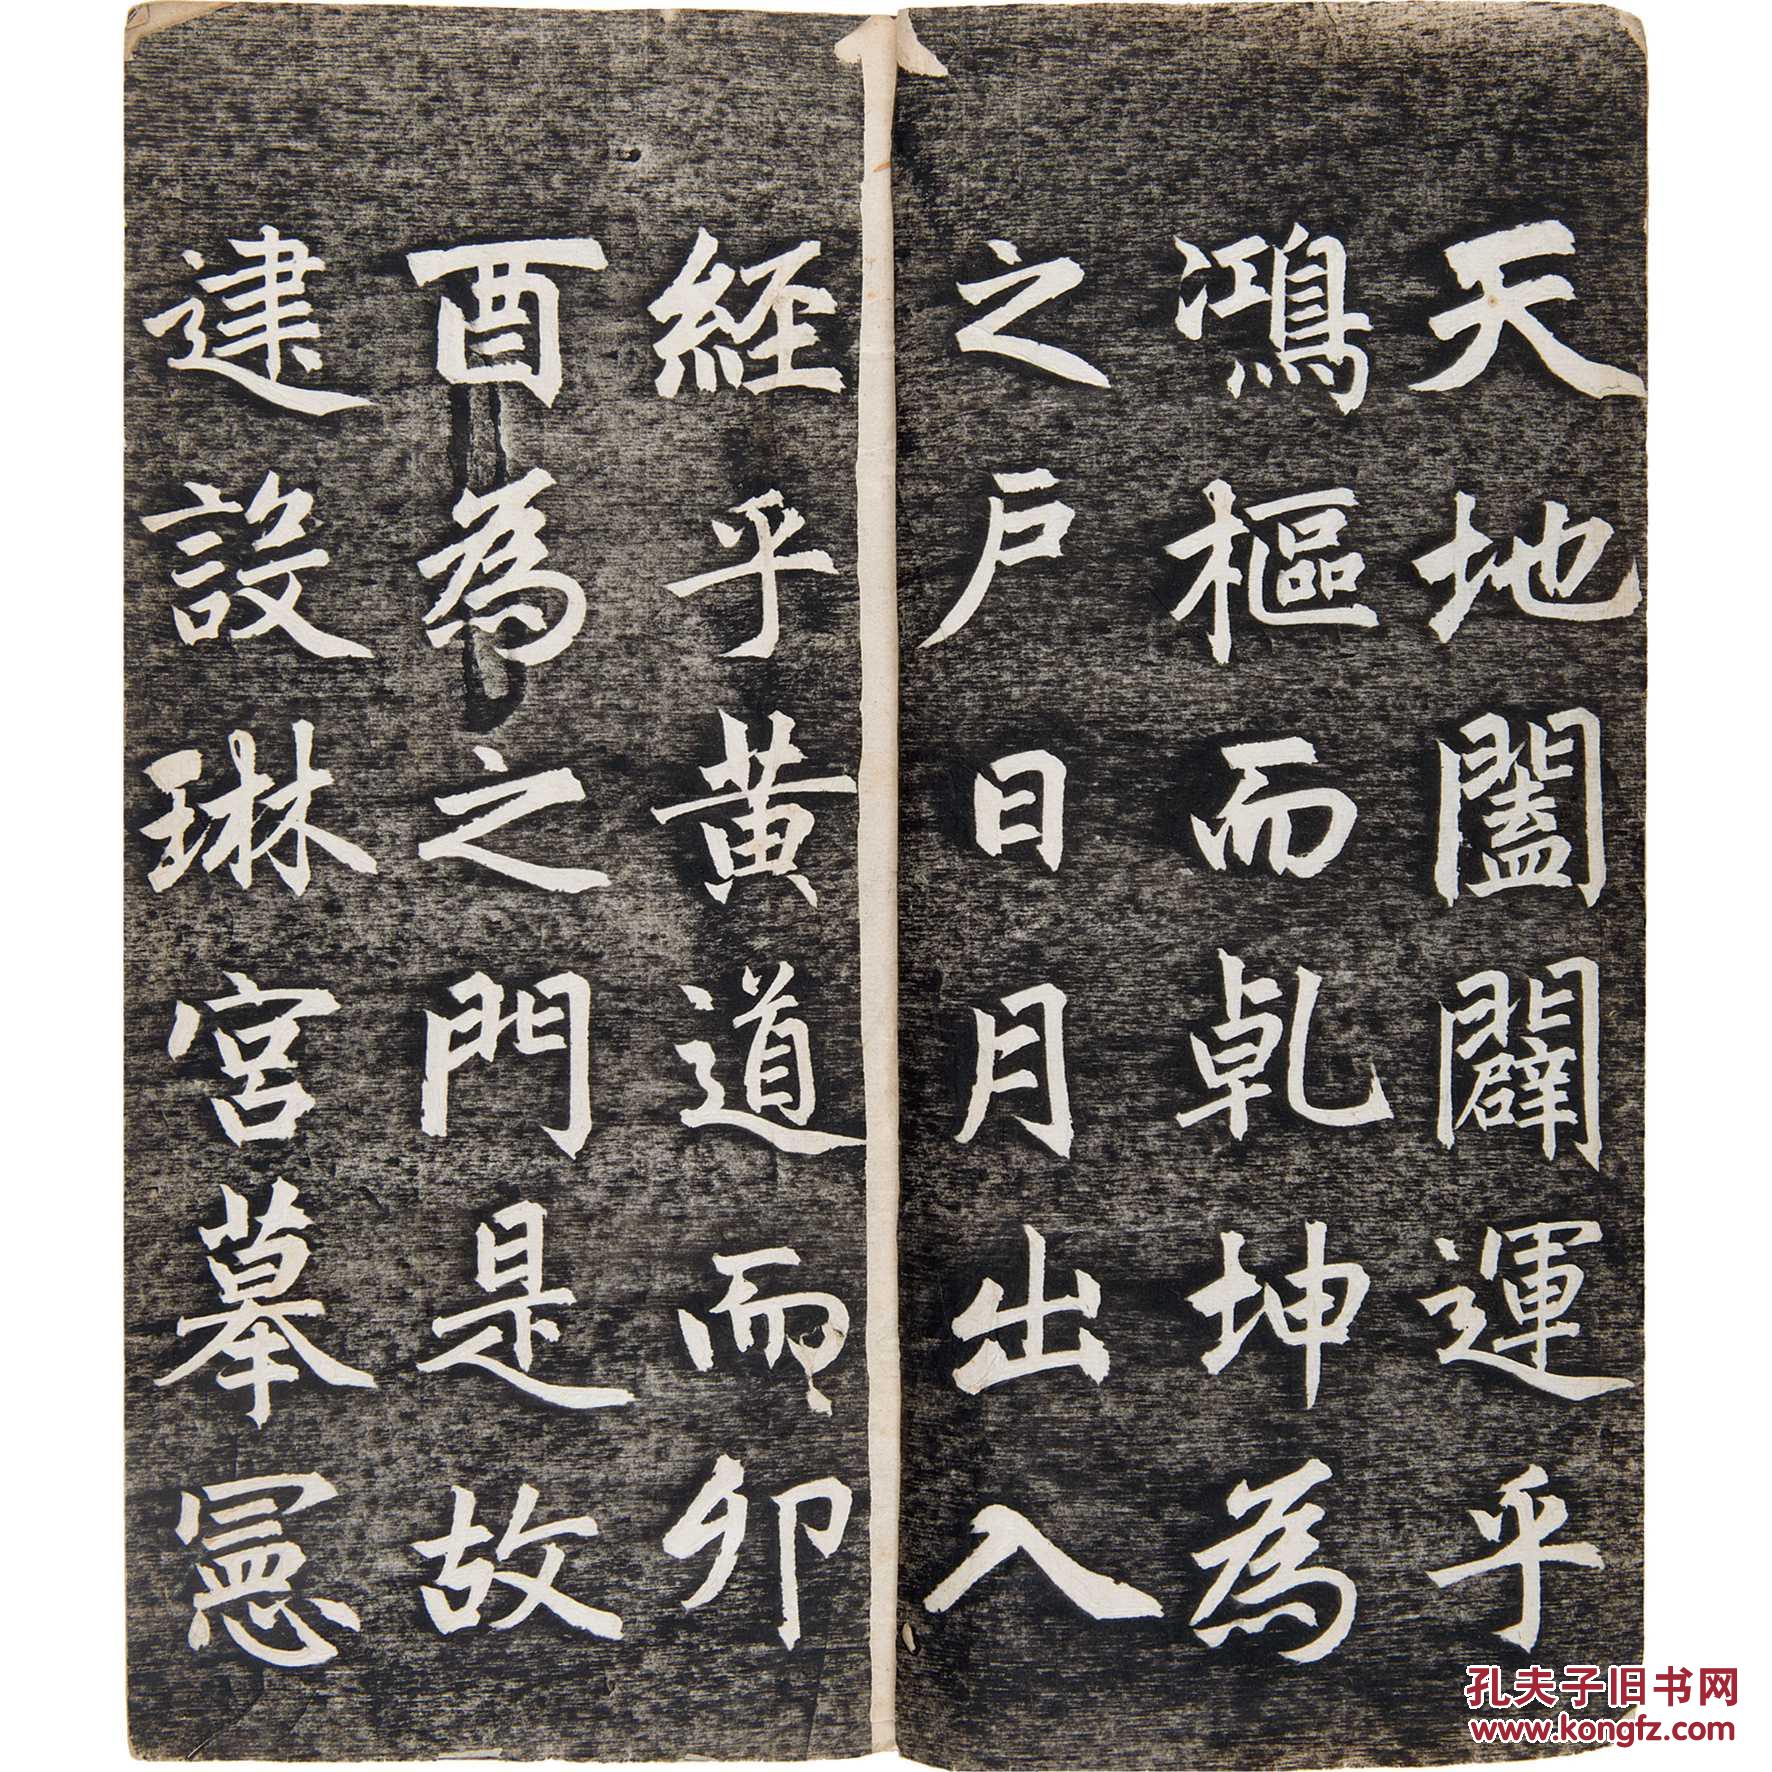 天地闔闢運乎
鴻樞而乹坤為
之戶日月出入
經乎黃道而卯
酉為之門是故
建設琳宮摹憲
孔夫子旧书网
www.kongfz.com